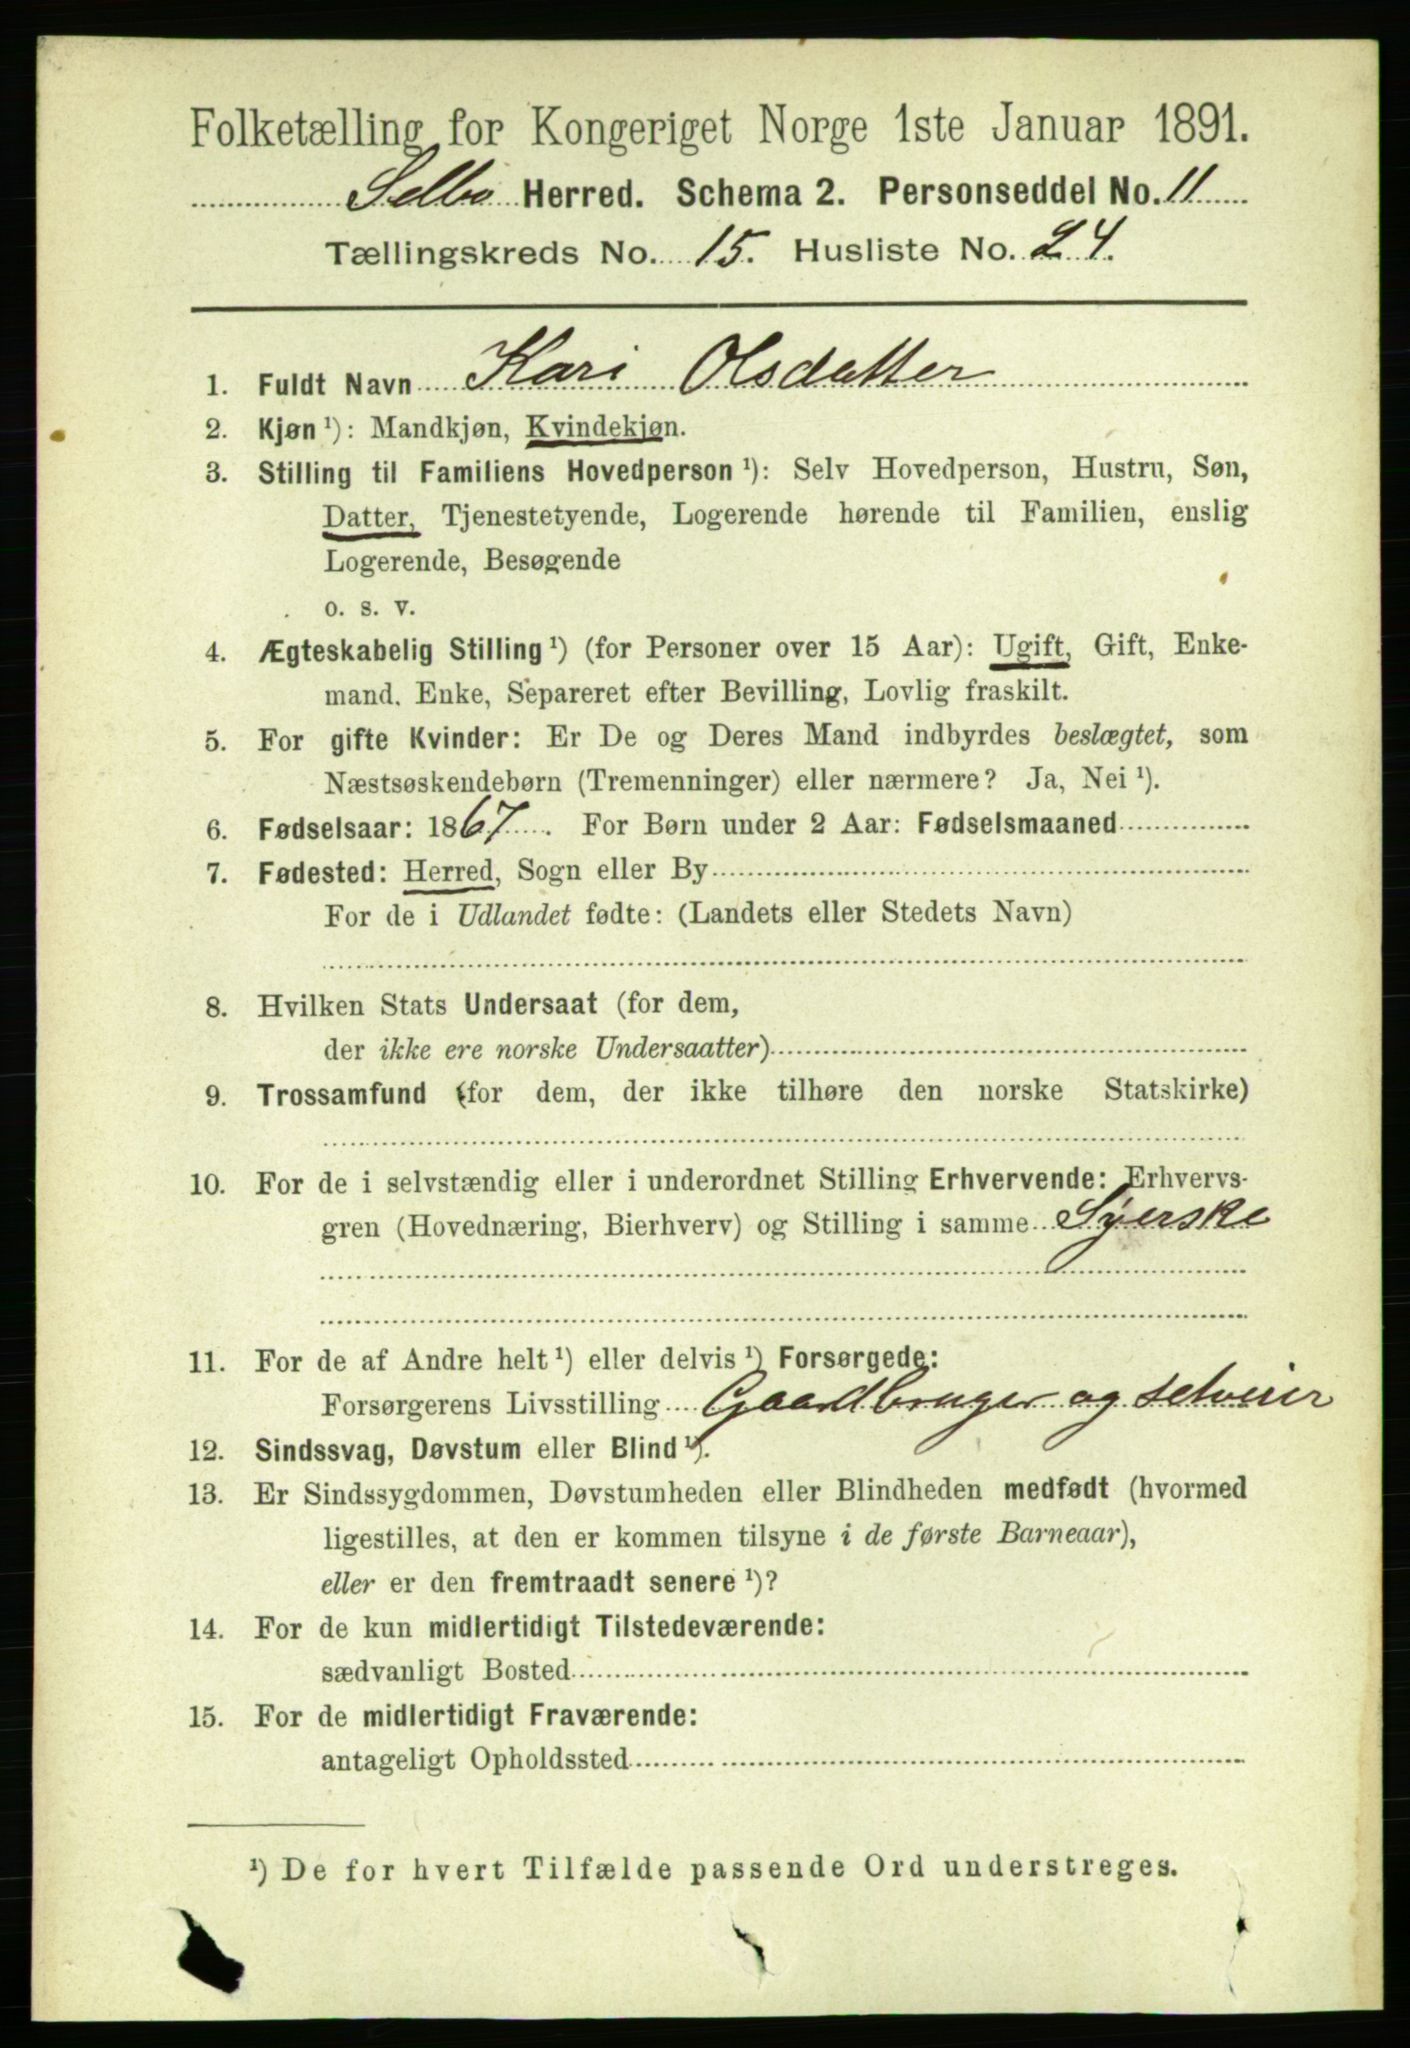 Folketælling for Kongeriget Norge 1ste Januar 1891.
Selbo Herred. Schema 2. Personseddel No. 11
Tællingskreds No. 15. Husliste No. 24.
1. Fuldt Navn Kari Olsdatter
2. Kjøn ¹): Mandkjøn, Kvindekjøn.
3. Stilling til Familiens Hovedperson ¹): Selv Hovedperson, Hustru, Søn,
Datter, Tjenestetyende, Logerende hørende til Familien, enslig
Logerende, Besøgende
o. s. v.
4. Ægteskabelig Stilling ¹) (for Personer over 15 Aar): Ugift, Gift, Enke-
mand. Enke, Separeret efter Bevilling, Lovlig fraskilt.
5. For gifte Kvinder: Er De og Deres Mand indbyrdes beslægtet, som
Næstsøskendebørn (Tremenninger) eller nærmere? Ja, Nei ¹).
6. Fødselsaar: 1867. For Børn under 2 Aar: Fødselsmaaned
7. Fødested: Herred, Sogn eller By
For de i Udlandet fødte: (Landets eller Stedets Navn)
8. Hvilken Stats Undersaat (for dem,
der ikke ere norske Undersaatter)
9. Trossamfund (for dem, der ikke tilhøre den norske Statskirke)
10. For de i selvstændig eller i underordnet Stilling Erhvervende: Erhvervs-
gren (Hovednæring, Bierhverv) og Stilling i samme Syerske
11. For de af Andre helt ¹) eller delvis ¹) Forsørgede:
Forsørgerens Livsstilling Gaardbruger og selveier
12. Sindssvag, Døvstum eller Blind ¹).
13. Er Sindssygdommen, Døvstumheden eller Blindheden medfødt (hvormed
ligestilles, at den er kommen tilsyne i de første Barneaar),
eller er den fremtraadt senere ¹)?
14. For de kun midlertidigt Tilstedeværende:
sædvanligt Bosted
15. For de midlertidigt Fraværende:
antageligt Opholdssted
¹) De for hvert Tilfælde passende Ord understreges.